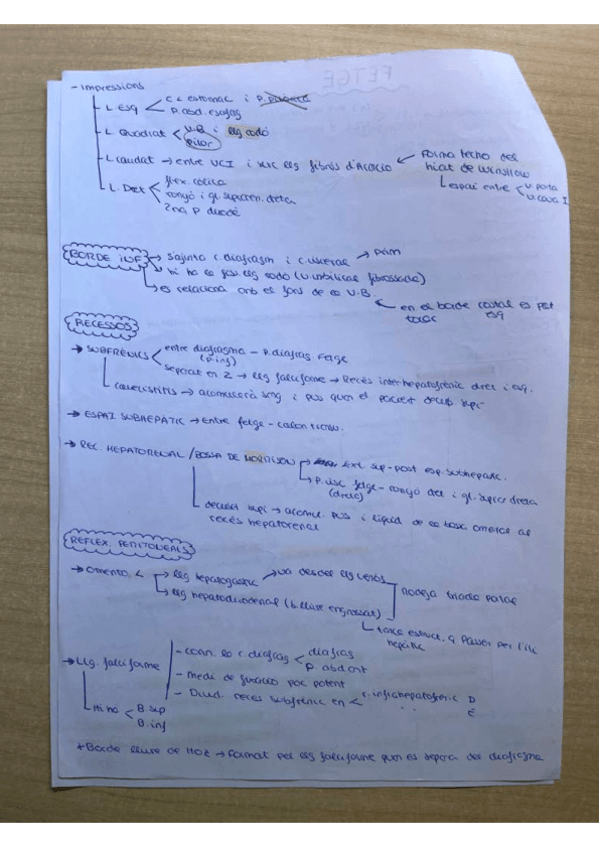 - IMPRESSIONS
L. ESQ < C L estomac i P.
P. abd. esofag
L. Quadrat < V.B i llig rodó
pilor
L. caudat → entre VCI i llig fibrós d'Aracio ← Forma techo del
hiat de Winslow
espai entre < V. porta
V. cava I.
L. Dret < flex. còlica
ronyó i gl. supraren. dreta
2na P duodè
BORDE INF → Sajunta c. diafragm i c. visceral → prim
hi ha es fos. llig rodó (v. umbilical fibrosada)
es relaciona amb el fons de la V.B.
← en el borde costal es pot
tocar esq
RECESSOS
→ SUBFRÈNICS < entre diafragma - P. diafrag. Fetge
(p. inf)
separat en 2 → llig falciforme → Recés interhepatofrènic dret i esq.
→ acumularà sang i pus quan el pacient decub. supi
→ ESPAI SUBHEPÀTIC → entre fetge - colon transv.
→ REC. HEPATORENAL / BOSSA DE MORRISON → Ext sup-post esp. subhepàtic.
P. visc fetge - ronyó dret i gl. suprar dreta
(dreta)
decúbit supi → acumul. pus i líquid de la bossa omental al
recés hepatorenal
REFLEX. PERITONEALS
→ Omento < → llig hepatogàstric → va desde llig venós
→ llig hepatoduodenal (b. lliure engrossat)
Rodeja triada portal
→ totes estruct. q passen per l'ili
hepàtic
→ Llig. falciforme
- conn. la c. diafrag < diafrag
P. abd ant
- medi de fixació poc potent
- Divid. recés subfrènic en < r. infrahepatofrènic D
" " E
Hi ha < B. sup
B. inf
* Borde lliure de HOZ → Format pel llig falciforme quan es separa del diafragma